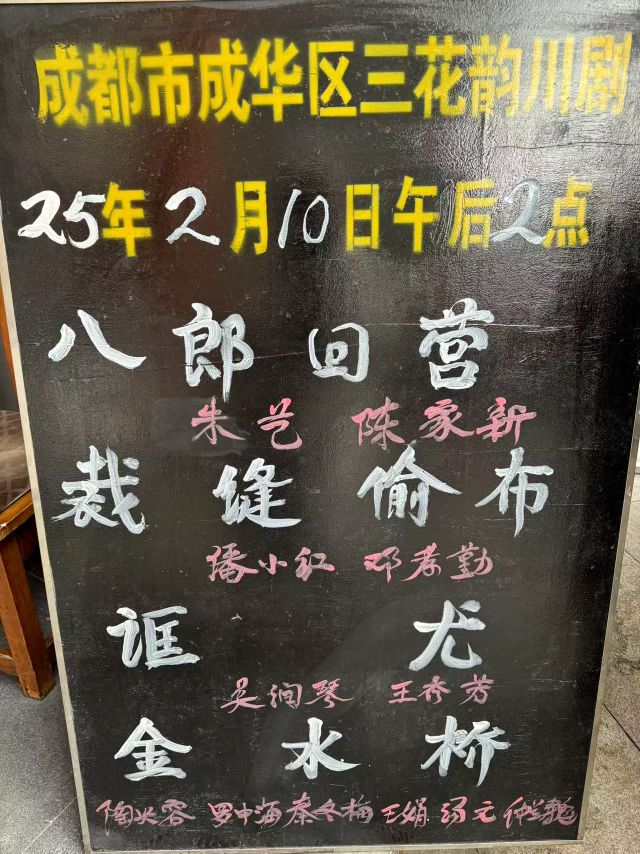 成都市成华区三花韵川剧
25年2月10日午后2点
八郎回营
朱艺 陈家新
裁缝偷布
潘小红 邓孝勤
诓尤
吴绚琴 王秀芳
金水桥
罗中海 秦冬梅 王娟